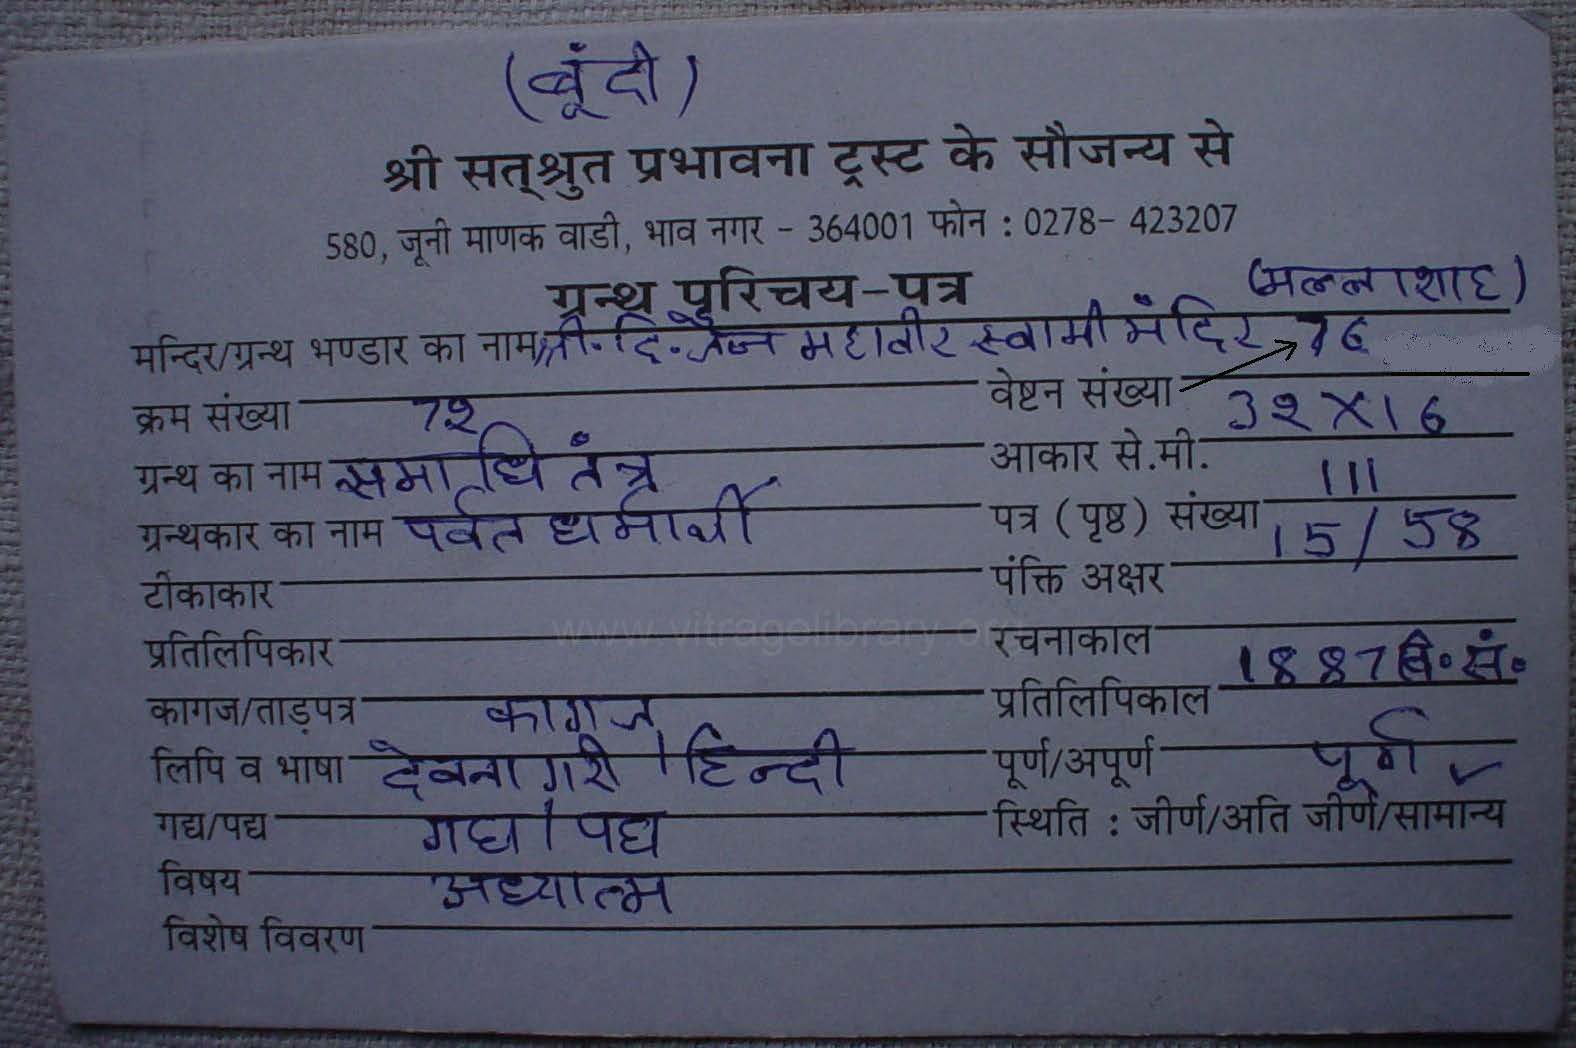 (बूंदी)
श्री सत्श्रुत प्रभावना ट्रस्ट के सौजन्य से
580, जूनी माणक वाडी, भाव नगर - 364001 फोन : 0278- 423207
ग्रन्थ परिचय-पत्र (मल्लाशाह)
मन्दिर/ग्रन्थ भण्डार का नाम श्री.दि.जैन महावीर स्वामी मंदिर
क्रम संख्या 72 वेष्टन संख्या 76
ग्रन्थ का नाम समाधि तंत्र आकार से.मी. 32 X 16
ग्रन्थकार का नाम पर्वत धर्मार्थी पत्र (पृष्ठ) संख्या 111
टीकाकार पंक्ति अक्षर 15/58
प्रतिलिपिकार रचनाकाल
कागज/ताड़पत्र कागज प्रतिलिपिकाल 1887 वि.सं.
लिपि व भाषा देवनागरी । हिन्दी पूर्ण/अपूर्ण पूर्ण
गद्य/पद्य गद्य । पद्य स्थिति : जीर्ण/अति जीर्ण/सामान्य ✓
विषय अध्यात्म
विशेष विवरण
www.vitragelibrary.org